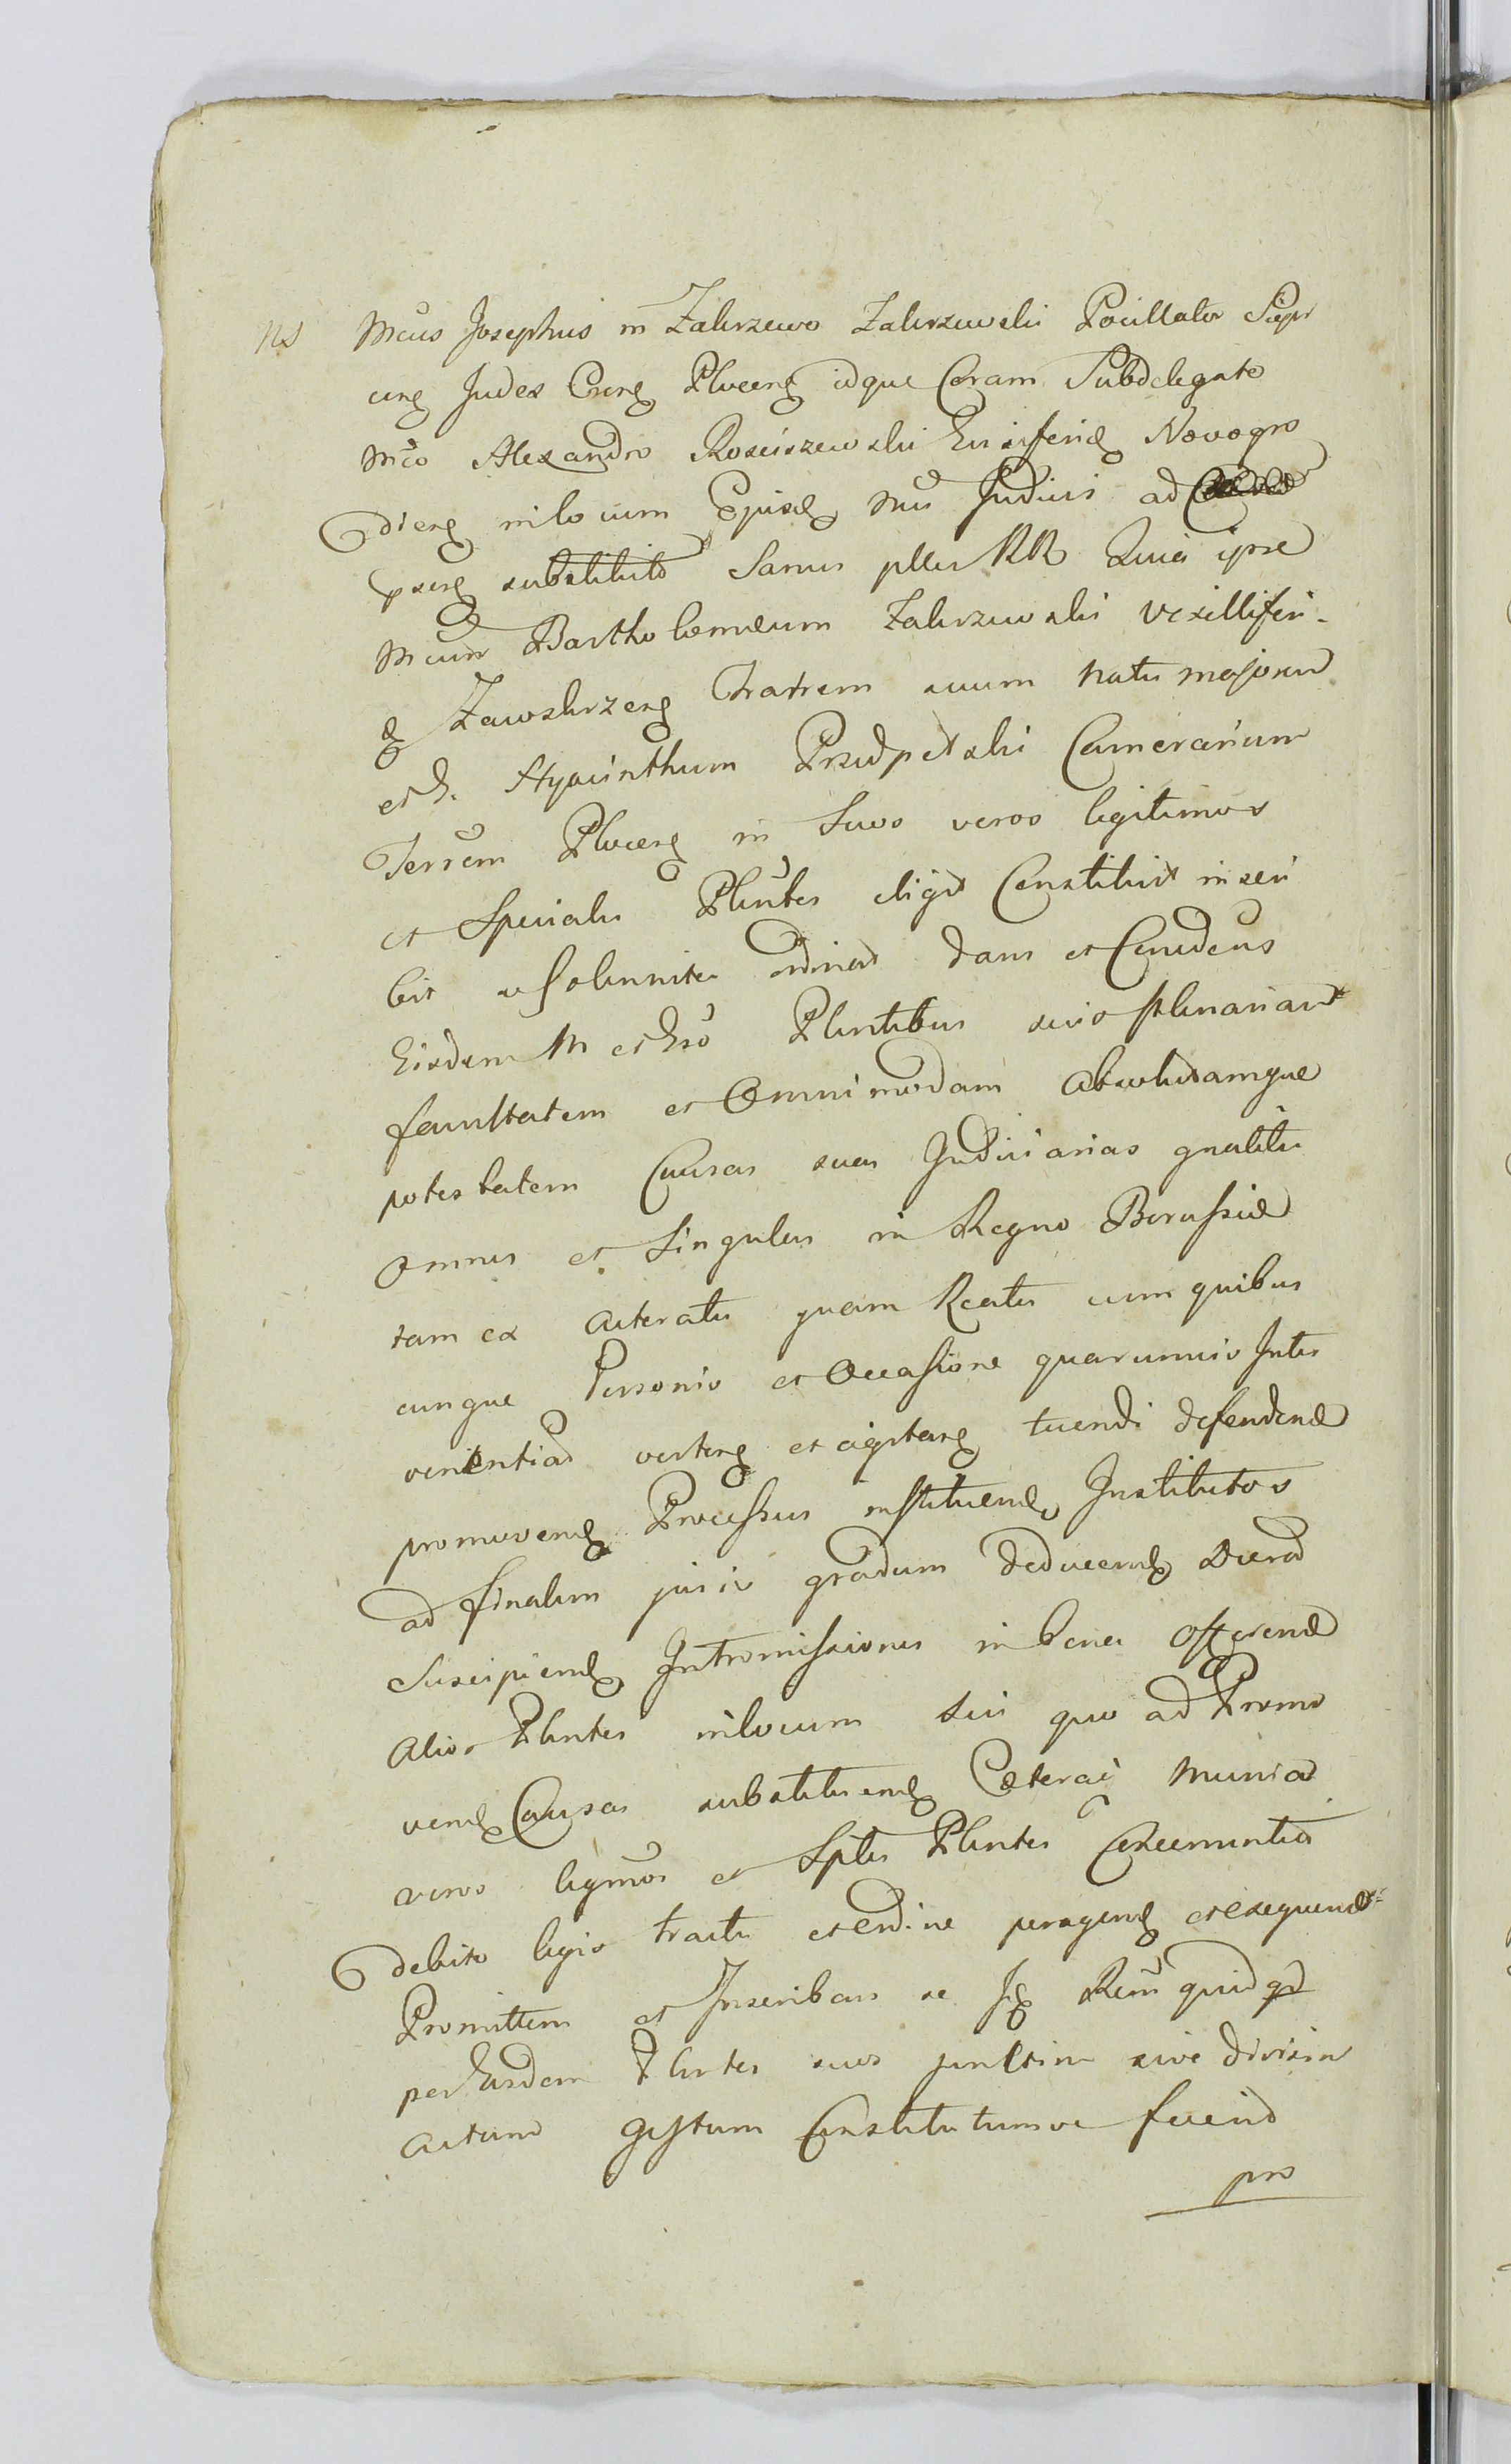 NS Mcus Josephus in Zakrzewo Zakrzewski Pocillator Siepr
cens Judex Cens Plocens idque Coram Subdelegato
Mco Alexandro Rosciszewski Ensiferid Novogro
diens in locum Ejusd Mci Judicis ad
substituto Sanus pllr RR Quia ipse
Mcum Bartholomeum Zakrzewski Vexilliferi-
Zawskrzens Fratrem suum natu majorem
et G. Hyacinthum Przedpelski Camerarium
Terrem Plocens in Suos veros legitimos
et Speciales Plentes eligit Constituit inscri
bit ac solenniter ordinat dans et Concedens
Eisdem M et Gso Plentibus suis plenariam
facultatem et Omnimodam absolutamque
potestatem Causas suas Judiciarias gnaliter
omnes et Singulas in Regno Borussiæ
tam ex actoratu quam Reatu cum quibus
cunque Personis et Occasione quarumvis Inter
venientia vertens et agitans tuendi defendend
promovend Processus instituend Institutos
ad finalem juris gradum deducend
Suscipiend Intromissiones in bona offerend
alios Plentes in locum sui quo ad Promo
vend Causas substituend Cæteraq munia
veros legmos et Sples Plentes Concernentia
debito legis tractu et ordine peragend et exequend
Promittens et Inscribens se Rem quidqd
per Eosdem Plentes suos junctim sive divisim
actum gestum Constitutumve fuerid
pro